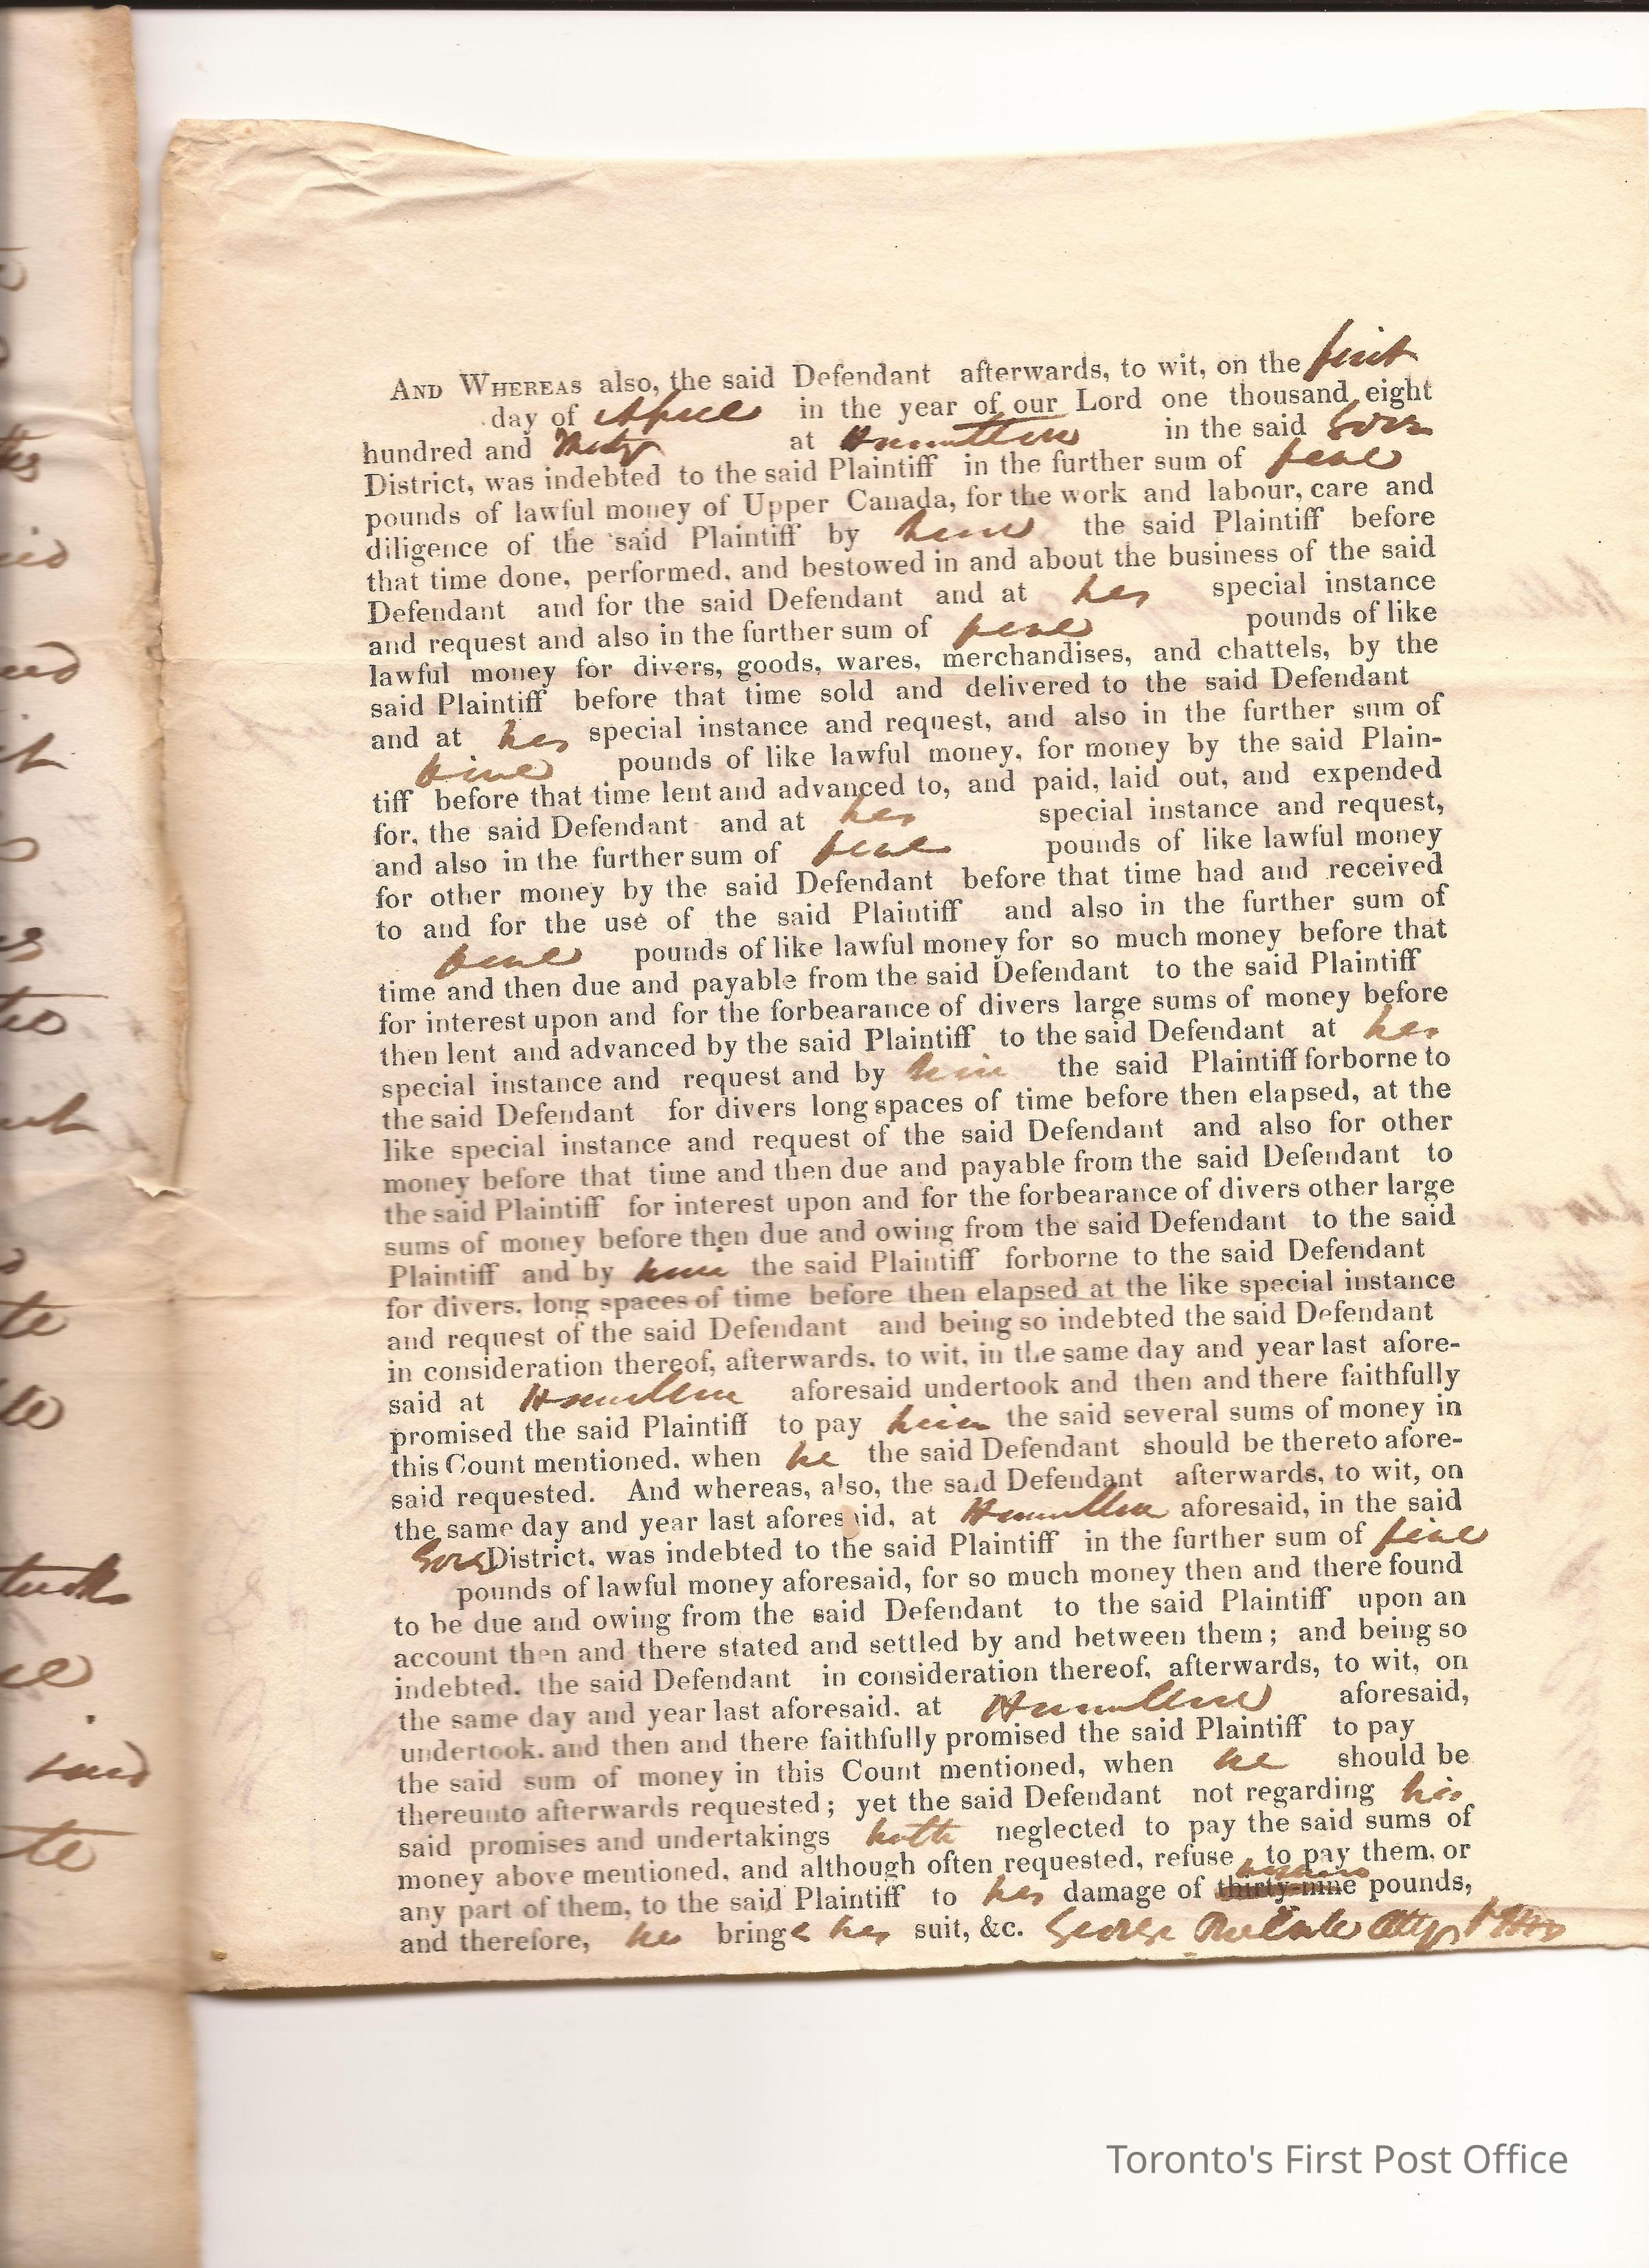 AND WHEREAS also, the said Defendant afterwards, to wit, on the first
day of April in the year of our Lord one thousand eight
hundred and thirty at Hamilton in the said Gore
District, was indebted to the said Plaintiff in the further sum of five
pounds of lawful money of Upper Canada, for the work and labour, care and
diligence of the said Plaintiff by him the said Plaintiff before
that time done, performed, and bestowed in and about the business of the said
Defendant and for the said Defendant and at his special instance
and request and also in the further sum of five pounds of like
lawful money for divers, goods, wares, merchandises, and chattels, by the
said Plaintiff before that time sold and delivered to the said Defendant
and at his special instance and request, and also in the further sum of
five pounds of like lawful money, for money by the said Plain-
tiff before that time lent and advanced to, and paid, laid out, and expended
for, the said Defendant and at his special instance and request,
and also in the further sum of five pounds of like lawful money
for other money by the said Defendant before that time had and received
to and for the use of the said Plaintiff and also in the further sum of
five pounds of like lawful money for so much money before that
time and then due and payable from the said Defendant to the said Plaintiff
for interest upon and for the forbearance of divers large sums of money before
then lent and advanced by the said Plaintiff to the said Defendant at his
special instance and request and by him the said Plaintiff forborne to
the said Defendant for divers long spaces of time before then elapsed, at the
like special instance and request of the said Defendant and also for other
money before that time and then due and payable from the said Defendant to
the said Plaintiff for interest upon and for the forbearance of divers other large
sums of money before then due and owing from the said Defendant to the said
Plaintiff and by him the said Plaintiff forborne to the said Defendant
for divers. long spaces of time before then elapsed at the like special instance
and request of the said Defendant and being so indebted the said Defendant
in consideration thereof, afterwards, to wit, in the same day and year last afore-
said at Hamilton aforesaid undertook and then and there faithfully
promised the said Plaintiff to pay him the said several sums of money in
this Count mentioned, when he the said Defendant should be thereto afore-
said requested. And whereas, also, the said Defendant afterwards, to wit, on
the same day and year last aforesaid, at Hamilton aforesaid, in the said
Gore District, was indebted to the said Plaintiff in the further sum of five
pounds of lawful money aforesaid, for so much money then and there found
to be due and owing from the said Defendant to the said Plaintiff upon an
account then and there stated and settled by and between them; and being so
indebted, the said Defendant in consideration thereof, afterwards, to wit, on
the same day and year last aforesaid, at Hamilton aforesaid,
undertook, and then and there faithfully promised the said Plaintiff to pay
the said sum of money in this Count mentioned, when he should be
thereunto afterwards requested; yet the said Defendant not regarding his
said promises and undertakings hath neglected to pay the said sums of
money above mentioned, and although often requested, refuse to pay them, or
any part of them, to the said Plaintiff to his damage of thirty-nine pounds,
and therefore, he brings his suit, &c. George Atty
Toronto's First Post Office